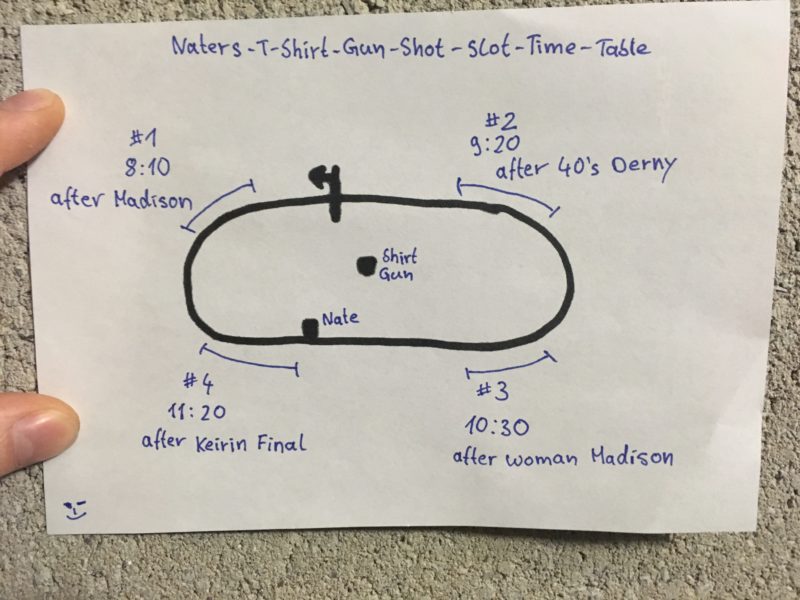 Naters-T-Shirt-Gun-Shot-Slot-Time-Table
#1
8:10
after Madison
#2
9:20
after 40's Derny
Shirt
Gun
Nate
#4
11:20
after Keirin Final
#3
10:30
after woman Madison